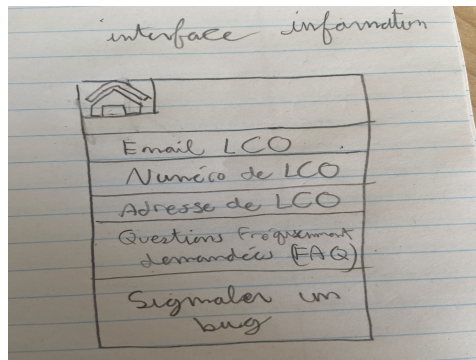 interface information
Email LCO
Numéro de LCO
Adresse de LCO
Questions Fréquemment
demandées (FAQ)
Signaler un
bug